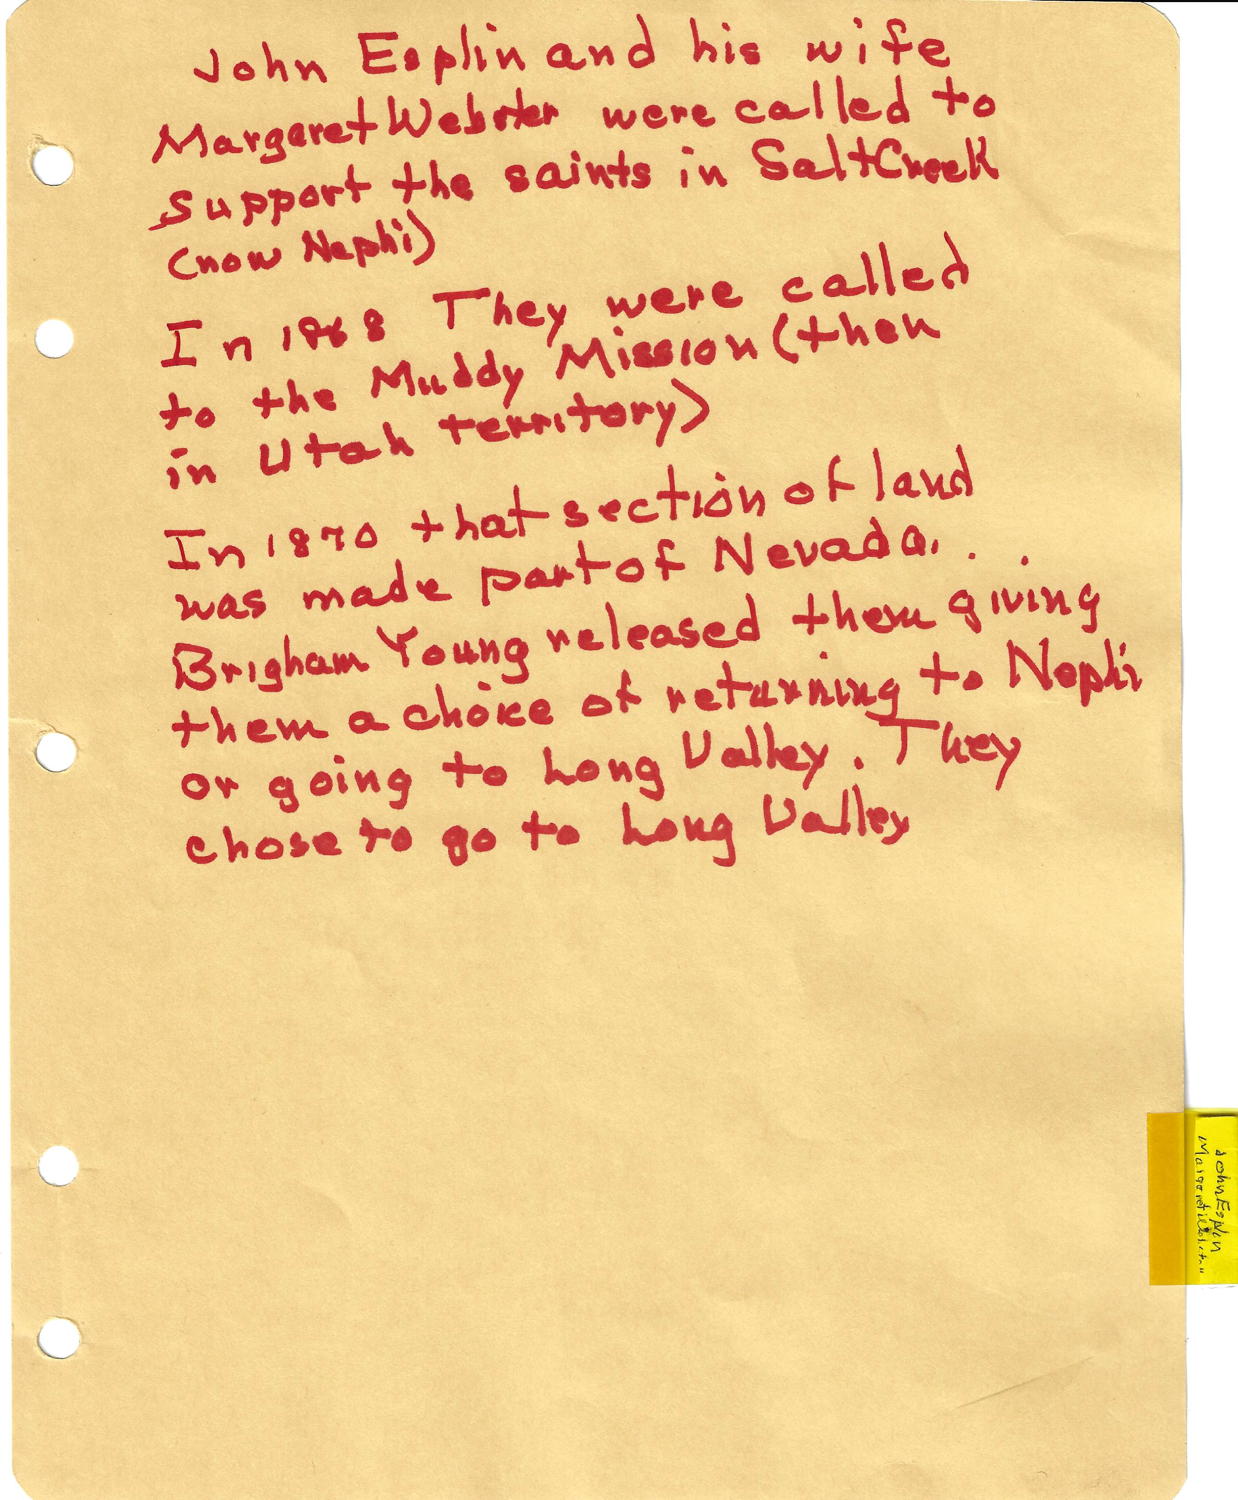 John Esplin and his wife
Margaret Webster were called to
support the saints in Salt Creek
(now Nephi)
In 1868 They were called
to the Muddy Mission (then
in Utah territory)
In 1870 that section of land
was made part of Nevada. . .
Brigham Young released them giving
them a choice of returning to Nephi
or going to Long Valley. They
chose to go to Long Valley
John Esplin
Margaret